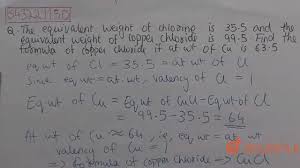 643221150
Q. The equivalent weight of chlorine is 35.5 and the
equivalent weight of copper chloride is 99.5. Find the
formula of copper chloride if at wt of Cu is 63.5
eq. wt of Cl = 35.5 = at wt of Cl
Since eq. wt = at. wt, valency of Cl = 1
Eq. wt of Cu = Eq. wt of CuCl - Eq. wt of Cl
= 99.5 - 35.5 = 64
At wt of Cu ≈ 64, i.e, eq wt = at. wt
valency of Cu = 1
=> formula of copper chloride => CuCl